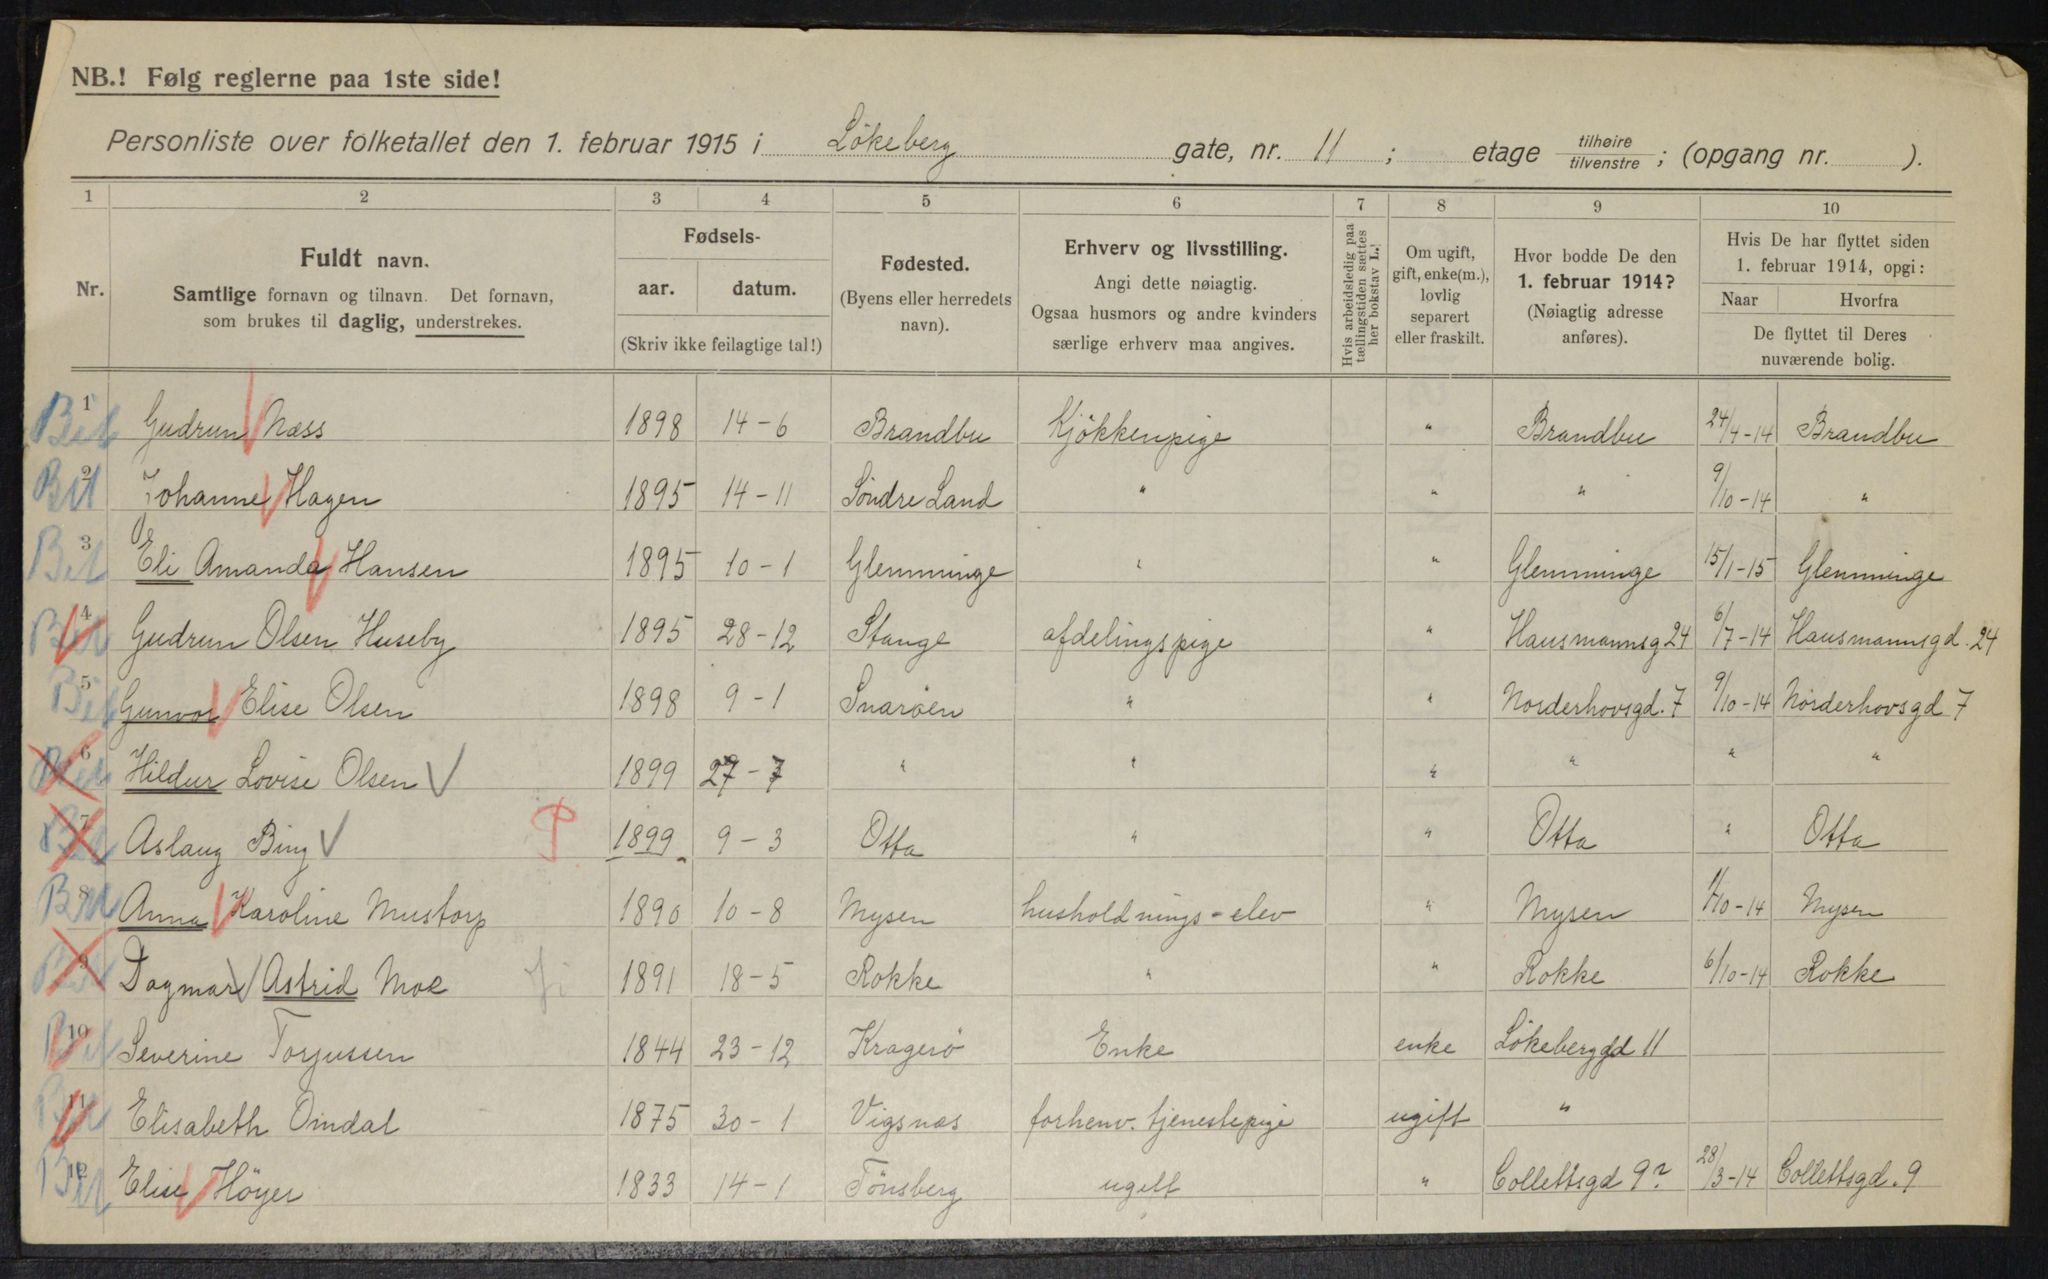 NB.! Følg reglerne paa 1ste side!
Personliste over folketallet den 1. februar 1915 i Lökeberg gate, nr. 11 ; etage tilhøire/tilvenstre ; (opgang nr. ).
1 2 3 4 5 6 7 8 9 10
Nr.
Fuldt navn.
Samtlige fornavn og tilnavn. Det fornavn,
som brukes til daglig, understrekes.
Fødsels-
aar. datum.
(Skriv ikke feilagtige tal!)
Fødested.
(Byens eller herredets
navn).
Erhverv og livsstilling.
Angi dette nøiagtig.
Ogsaa husmors og andre kvinders
særlige erhverv maa angives.
Hvis arbeidsledig paa
tællingstiden sættes
her bokstav L.!
Om ugift,
gift, enke(m.),
lovlig
separert
eller fraskilt.
Hvor bodde De den
1. februar 1914?
(Nøiagtig adresse
anføres).
Hvis De har flyttet siden
1. februar 1914, opgi:
Naar Hvorfra
De flyttet til Deres
nuværende bolig.
1 Gudrun Næss 1898 14-6 Brandbu Kjökkenpige " Brandbu 24/4-14 Brandbu
2 Johanne Hagen 1895 14-11 Söndre Land " " " 9/10-14 "
3 Eli Amanda Hansen 1895 10-1 Glemminge " " Glemminge 15/1-15 Glemminge
4 Gudrun Olsen Huseby 1895 28-12 Stange afdelingspige " Hausmannsg 24 6/7-14 Hausmannsgd. 24
5 Gunvor Elise Olsen 1898 9-1 Snaröen " " Norderhovsgd. 7 9/10-14 Norderhovsgd 7
6 Hildur Lovise Olsen 1899 27-7 " " " " " "
7 Aslaug Bing 1899 9-3 Otta " " Otta " Otta
8 Anna Karoline Mustorp 1890 10-8 Mysen husholdnings-elev " Mysen 1/10-14 Mysen
9 Dagmar Astrid Moe 1891 18-5 Rokke " " Rokke 6/10-14 Rokke
10 Severine Torjussen 1844 23-12 Kragerö Enke enke Lökeberggd 11
11 Elisabeth Omdal 1875 30-1 Vigsnæs forhenv. tjenestepige ugift "
12 Elise Höyer 1833 14-1 Tönsberg ugift " Collettsgd 9? 28/3-14 Collettsgd. 9